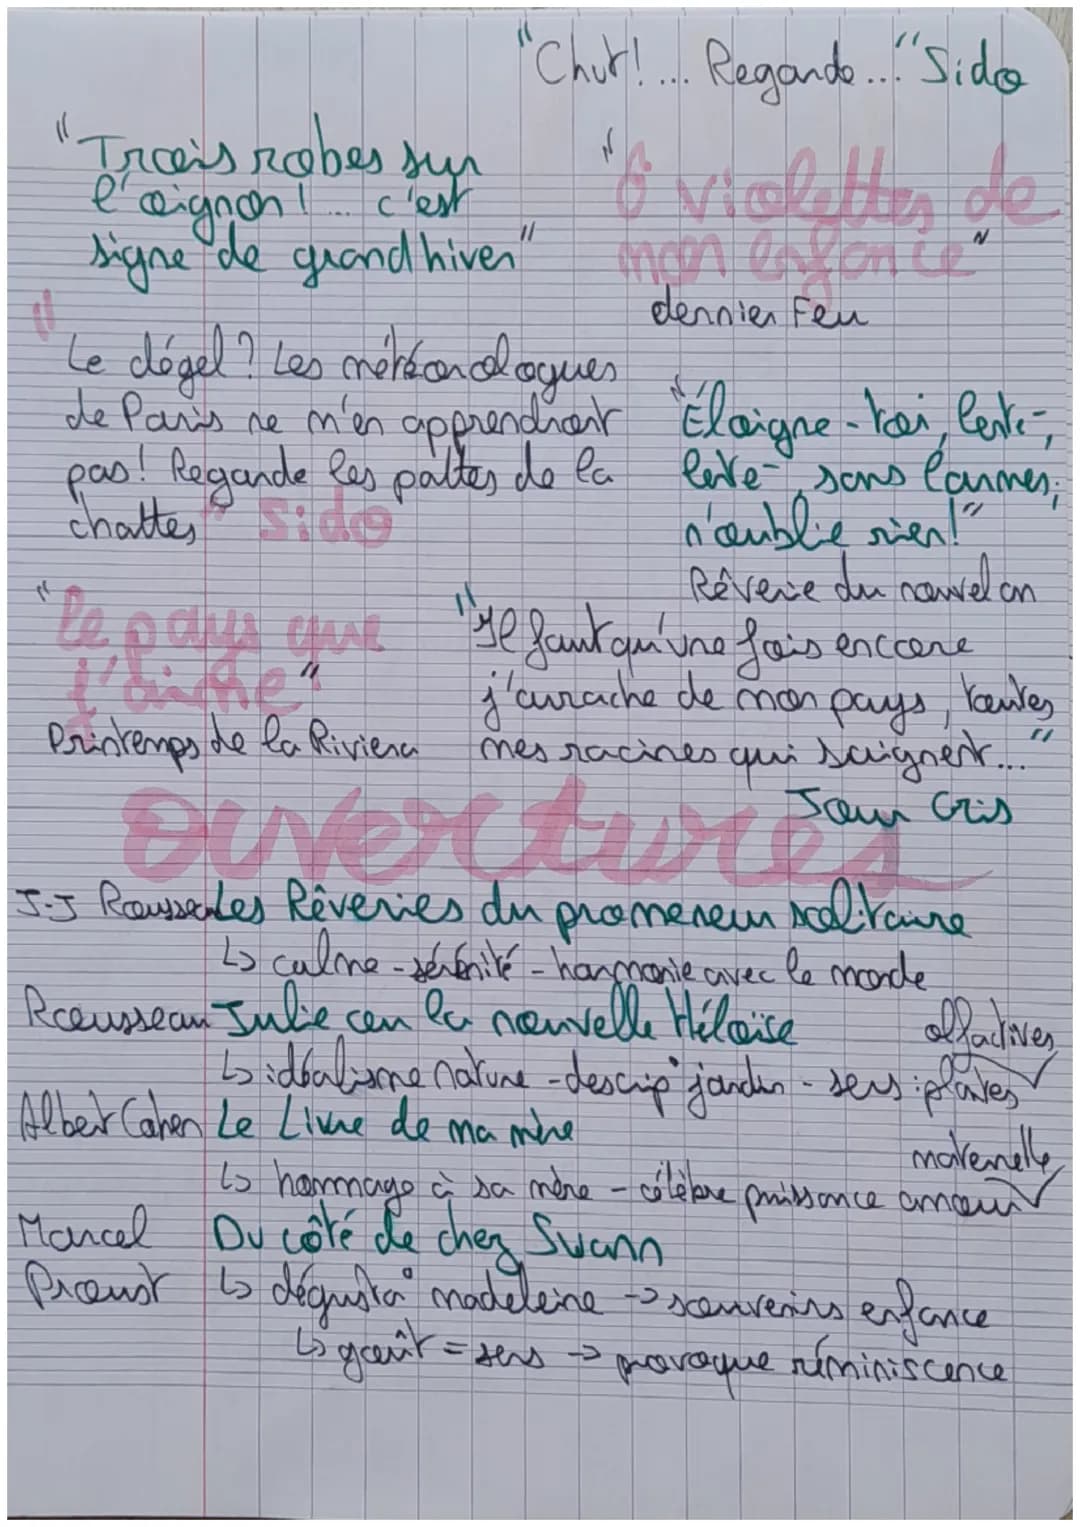 "Chut! ... Regarde..." Sido
"Trois robes sur
l'oignon! ... c'est
signe de grand hiver"
"ô violettes de
mon enfance"
dernier Feu
"Le dégel? Les météorologues
de Paris ne m'en apprendront
pas! Regarde les pattes de la
chattes" Sido
"Éloigne-toi, lente-,
lente-, sans larmes;
n'oublie rien!"
Rêverie du nouvel an
"le pays que
j'aime"
Printemps de la Riviera
"Il faut qu'une fois encore
j'arrache de mon pays, toutes
mes racines qui saignent..."
Jour Gris
ouvertures
J-J Rousseau Les Rêveries du promeneur solitaire
↳ calme - sérénité - harmonie avec le monde
Rousseau Julie ou la nouvelle Héloïse
↳ idéalisme nature - descrip° jardin - sens : plantes olfactives
Albert Cohen Le Livre de ma mère
↳ hommage à sa mère - célèbre puissance amour maternelle
Marcel Proust Du côté de chez Swann
↳ dégusta° madeleine → souvenirs enfance
↳ goût = sens → provoque réminiscence